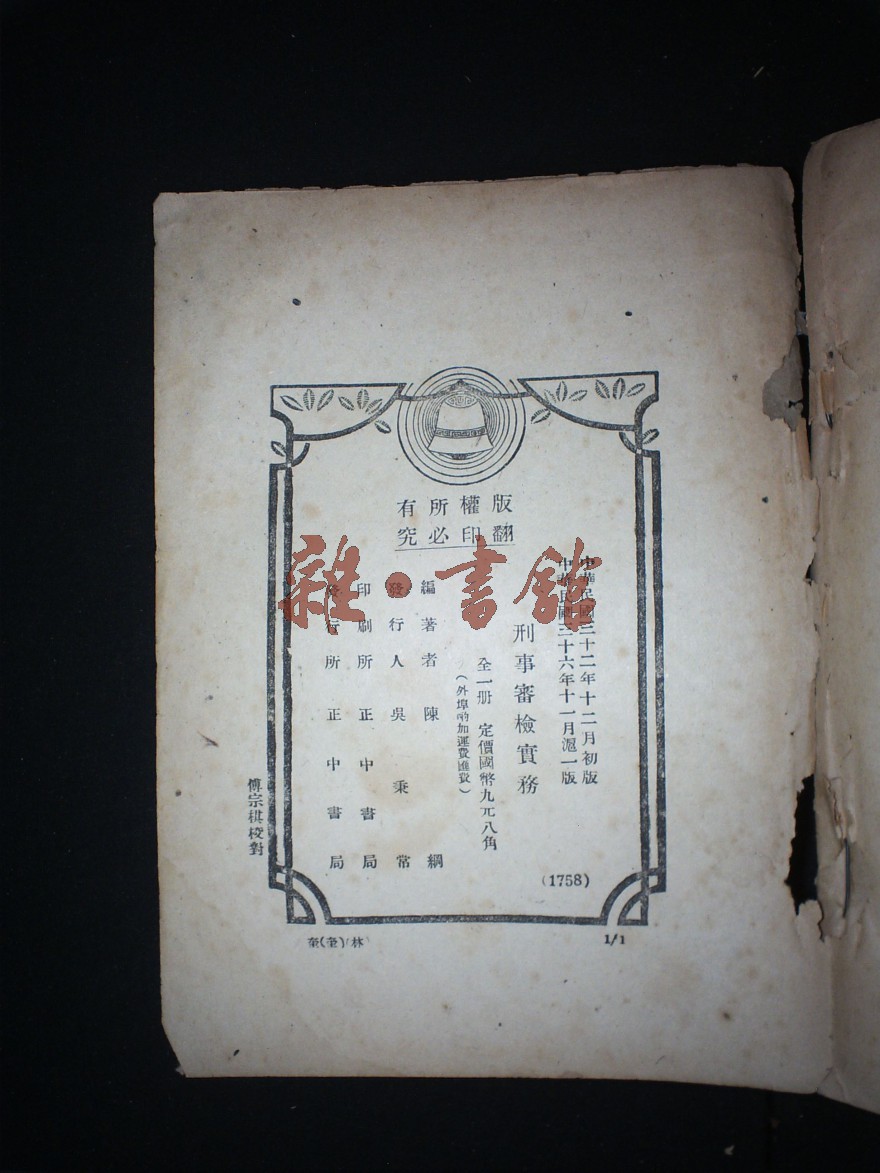 版權所有
翻印必究
中華民國三十二年十二月初版
中華民國三十六年十一月滬一版
刑事審檢實務
全一册 定價國幣九元八角
(外埠酌加運費匯費)
編著者 陳綱
發行人 吳秉常
印刷所 正中書局
發行所 正中書局
(1758)
傅宗棋校對
1/1
雜·書館